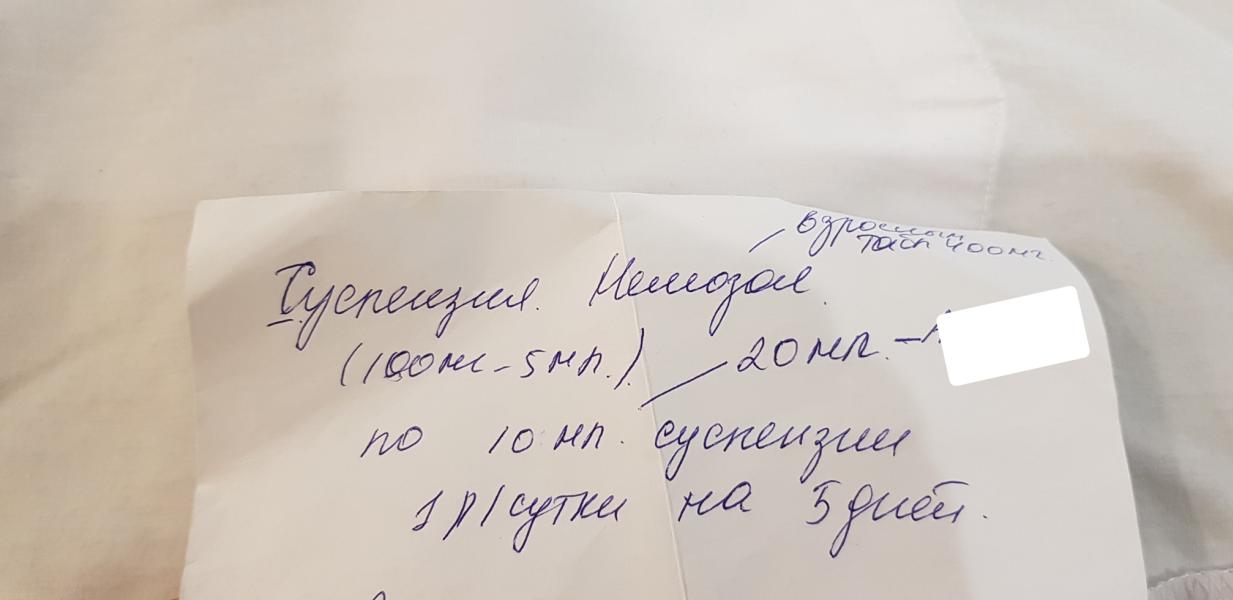 взрослым
табл 400мг.
Суспензия. Немозол.
(100мг - 5мл.) 20 мл. -
по 10 мл. суспензии
1 р/сутки на 5 дней.